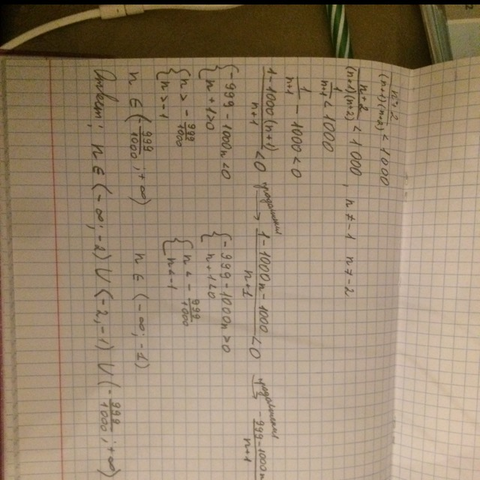 n+2/(n+1)(n+2) < 1000
n+2/(n+1)(n+2) < 1000, n ≠ -1 n ≠ -2
1/n+1 < 1000
1/n+1 - 1000 < 0
1-1000(n+1)/n+1 < 0 продолжение → 1-1000n-1000/n+1 < 0 продолжение → -999-1000n/n+1
{-999-1000n<0 {-999-1000n>0
{n+1>0 {n+1<0
{n > -999/1000 {n < -999/1000
{n > -1 {n < -1
n ∈ (-999/1000; +∞) n ∈ (-∞; -1)
Ответ: n ∈ (-∞; -2) ∪ (-2, -1) ∪ (-999/1000; +∞)